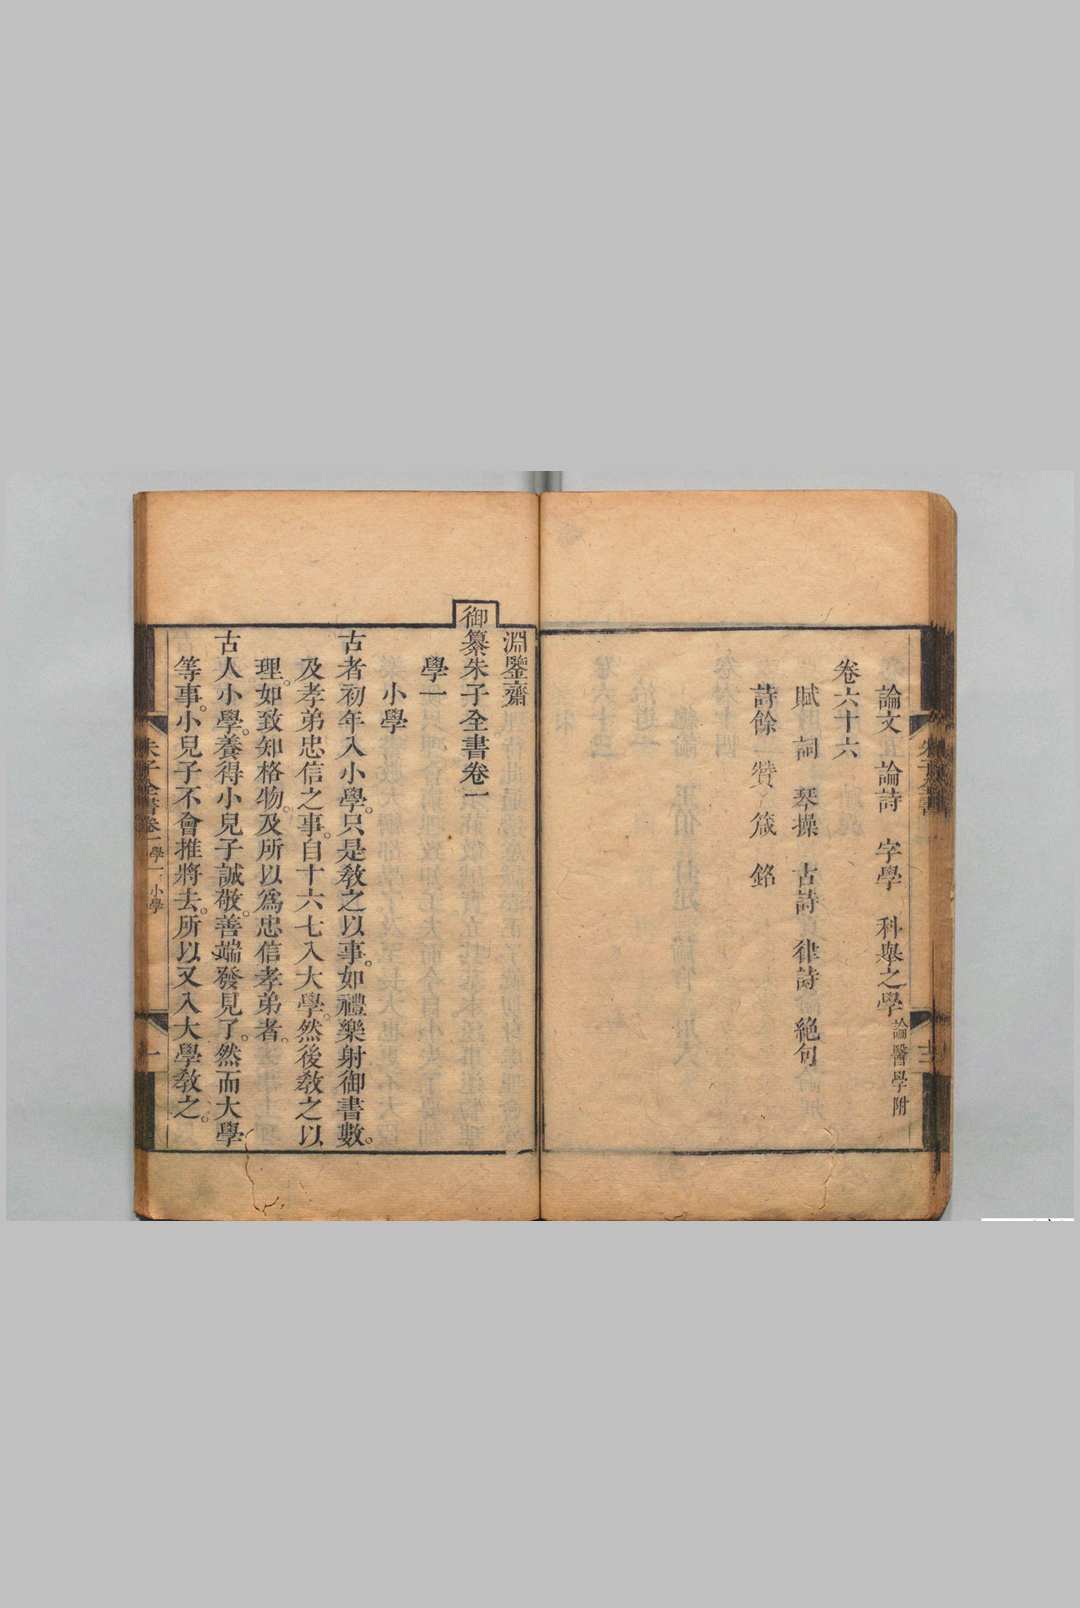 論文　論詩　字學　科舉之學論醫學附
卷六十六
賦　詞　琴操　古詩　律詩　絕句
詩餘　贊　箴　銘
淵鑒齋
御纂朱子全書卷一
學一
小學
古者初年入小學。只是敎之以事。如禮樂射御書數。
及孝弟忠信之事。自十六七入大學。然後敎之以
理。如致知格物。及所以爲忠信孝弟者。
古人小學。養得小兒子誠敬。善端發見了。然而大學
等事。小兒子不會推將去。所以又入大學敎之。
朱子全書卷一　學一　小學　一